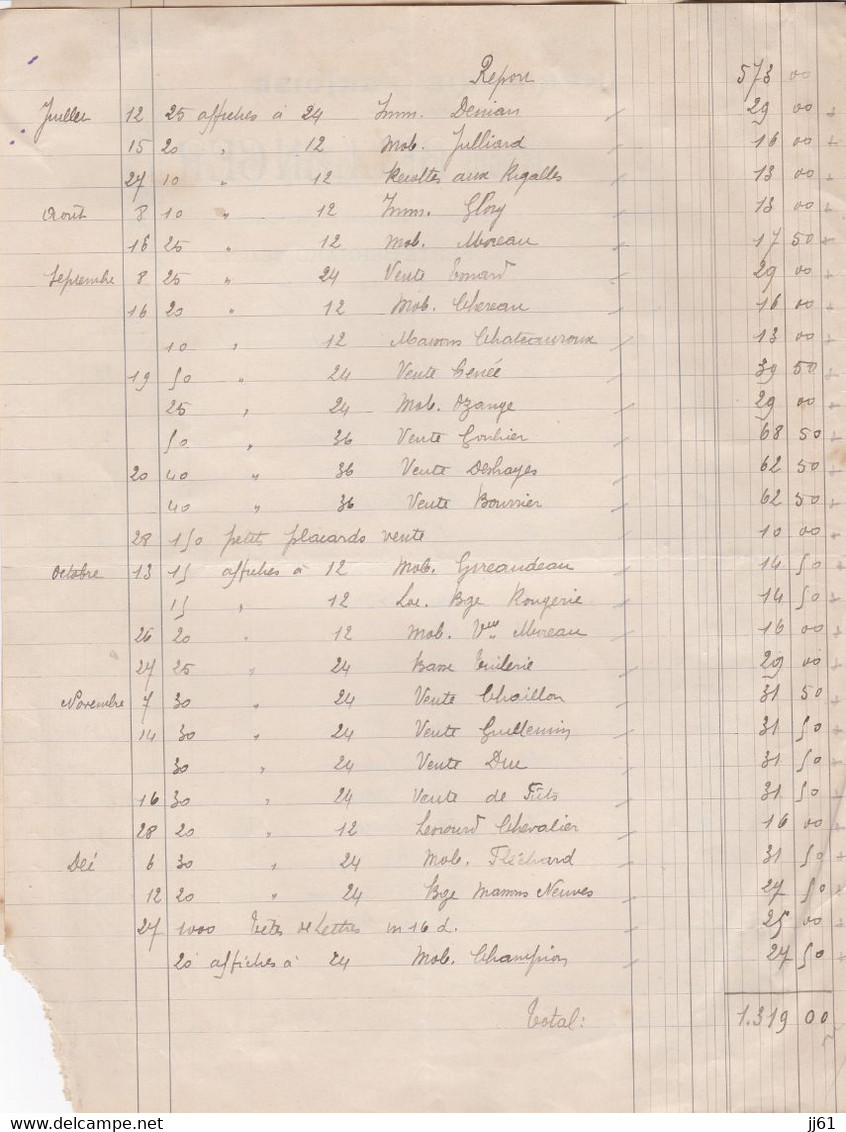 Report 573 00
Juillet 12 25 affiches à 24 Imm. Denian 29 00
15 20 " 12 Mob. Julliard 16 00
27 10 " 12 Récoltes aux Rigalles 13 00
Août 8 10 " 12 Imm. Glory 13 00
16 25 " 12 Mob. Moreau 17 50
Septembre 8 25 " 24 Vente 29 00
16 20 " 12 Mob. Chereau 16 00
10 " 12 Maisons Chateauroux 13 00
19 50 " 24 Vente Genée 39 50
25 " 24 Mob. Ozange 29 00
50 " 36 Vente Gouhier 68 50
20 40 " 36 Vente Deshayes 62 50
40 " 36 Vente Bourrier 62 50
28 150 petits placards vente 10 00
Octobre 13 15 affiches à 12 Mob. Gireaudeau 14 50
15 " 12 Loc. Bge Rougerie 14 50
26 20 " 12 Mob. Vve Moreau 16 00
27 25 " 24 Basse Tuilerie 29 00
Novembre 7 30 " 24 Vente Chaillon 31 50
14 30 " 24 Vente Guillemin 31 50
30 " 24 Vente Duc 31 50
16 30 " 24 Vente de Fûts 31 50
28 20 " 12 Chevalier 16 00
Déc 6 30 " 24 Mob. Fléchard 31 50
12 20 " 24 Bge Maisons Neuves 27 50
27 1000 Têtes de Lettres in 16 d. 25 00
20 affiches à 24 Mob. Champion 27 50
Total: 1.319 00
www.delcampe.net
jj61